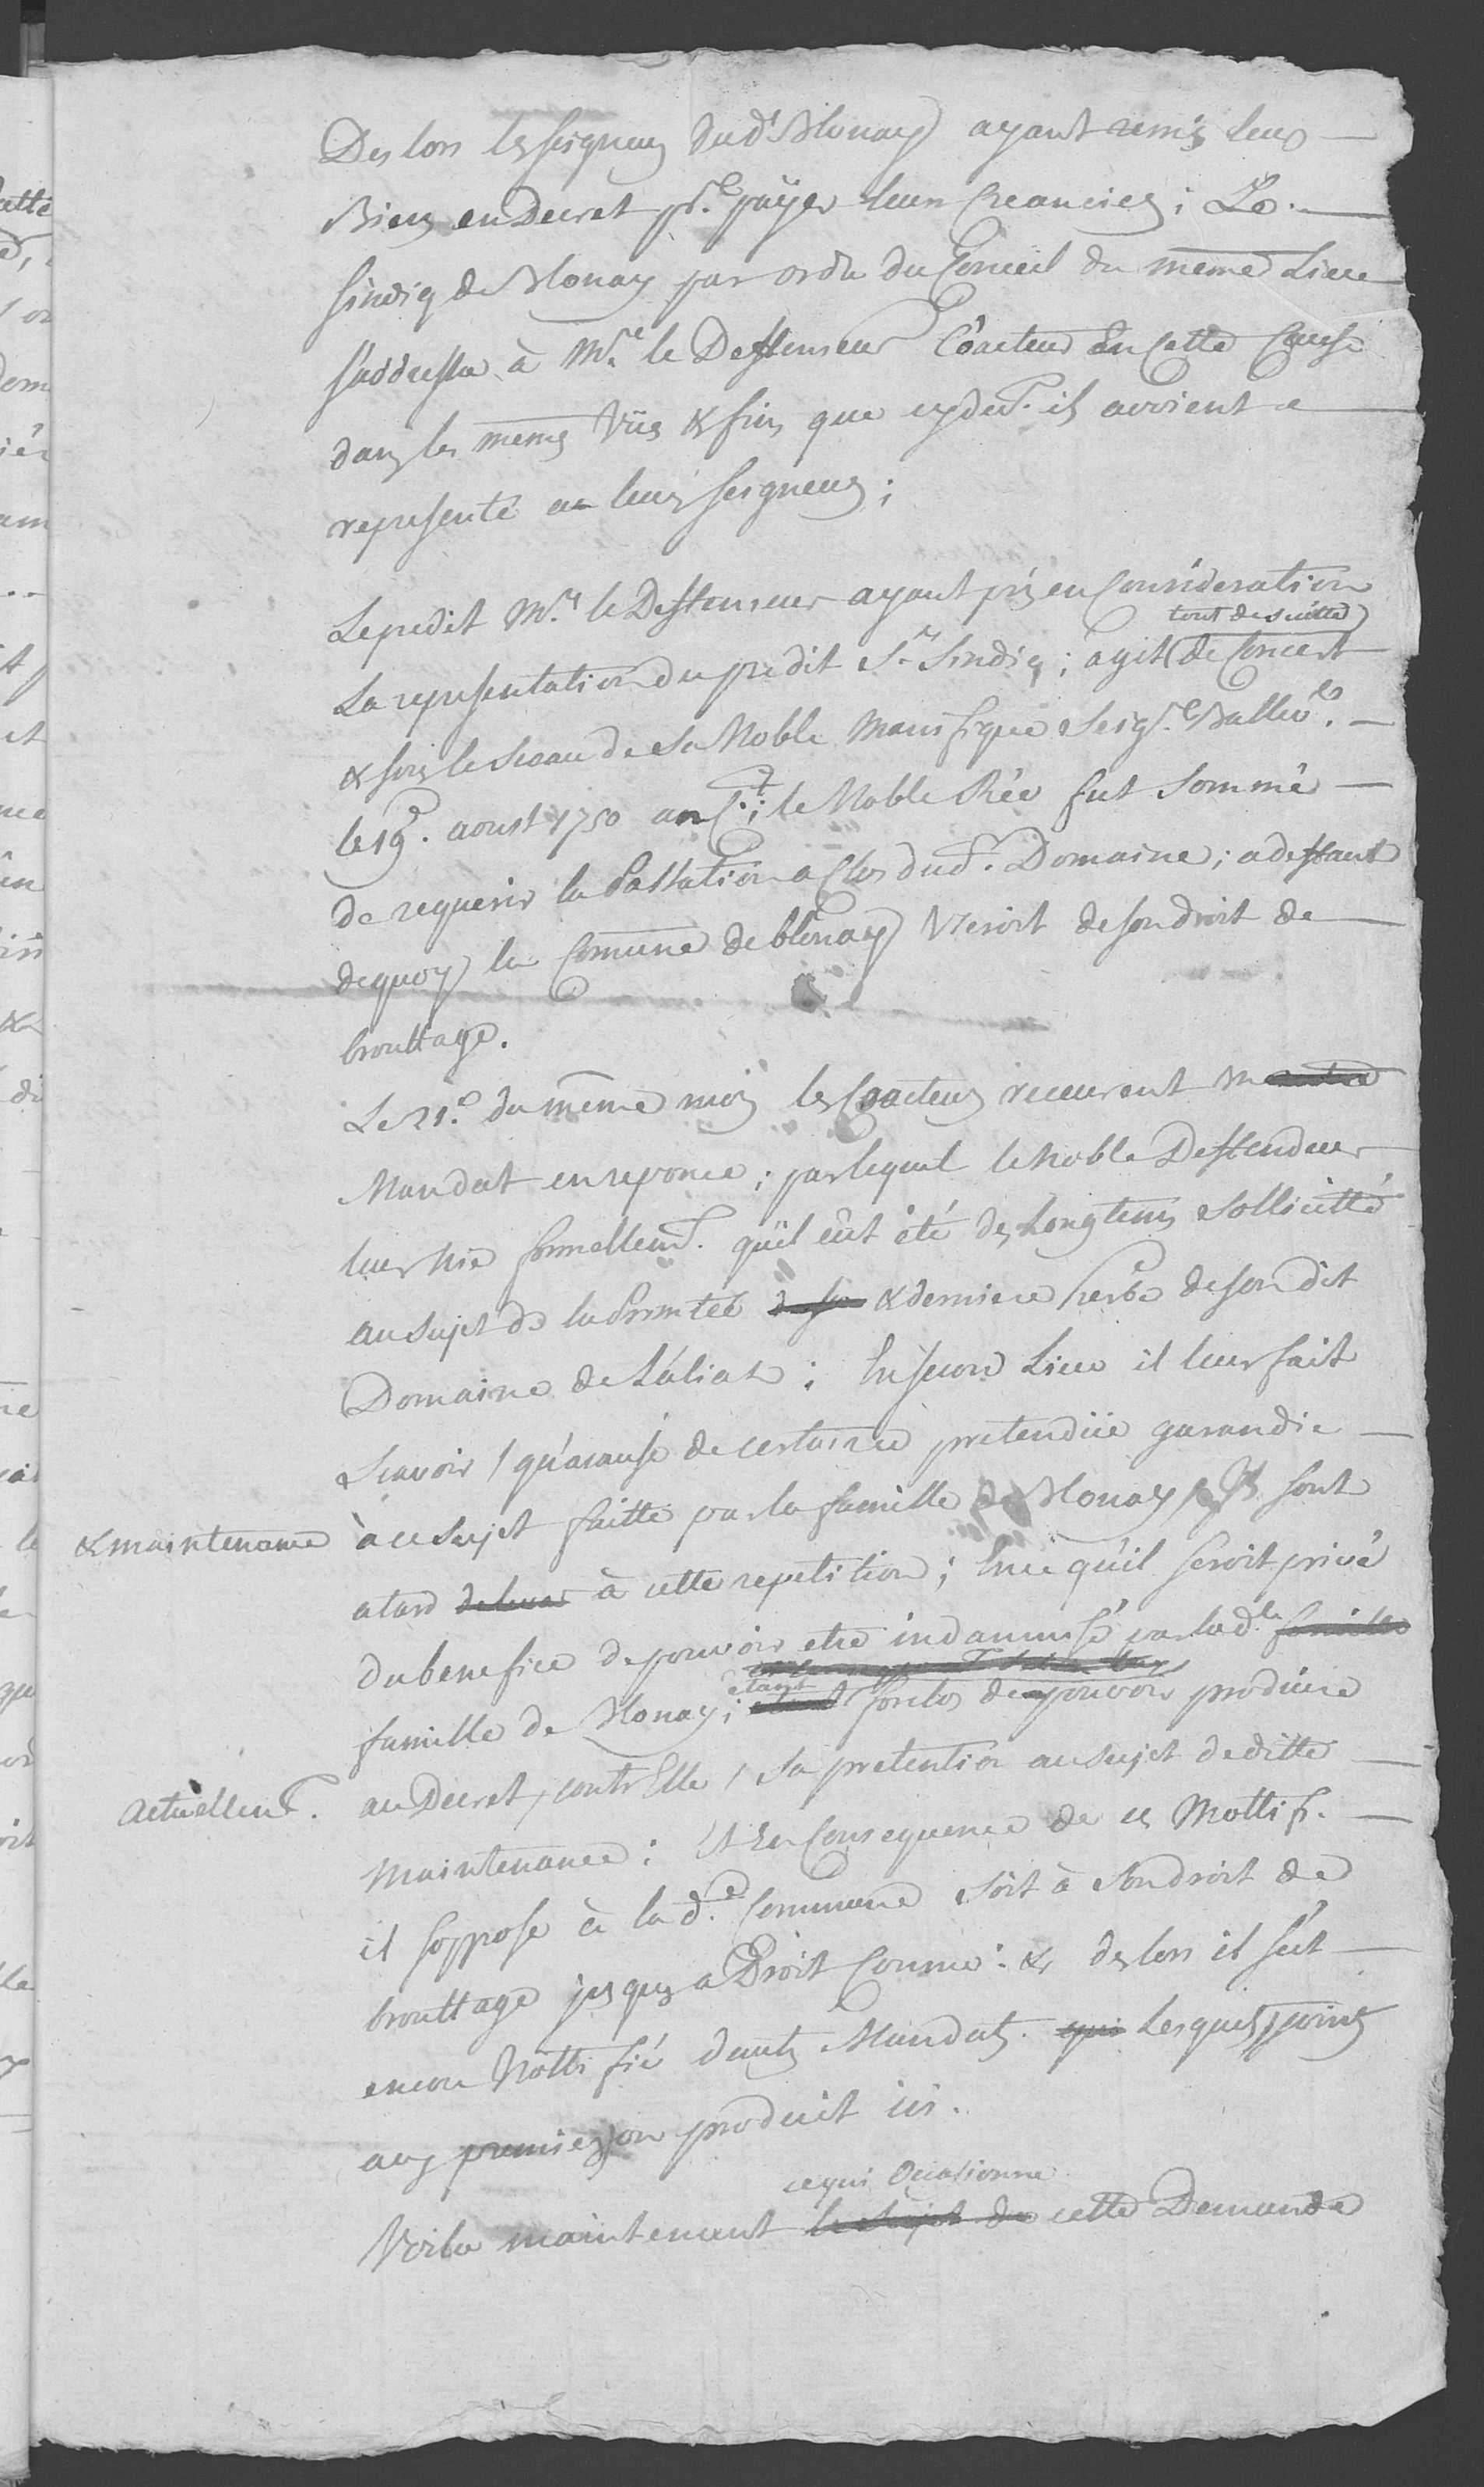 Des lors les seigneurs dud.t Blonay ayant remis leurs
Biens en Decret p.r payer leurs Creanciers; Le
sindiq de Blonay par ordre du Conseil du meme Lieu
s'addressa à M.r le Deffenseur Coacteur En Cette Cause
dans les memes Vües & fins que cy dev.t ils avoient
representé a leurs seigneurs;
Le predit M.r le Deffenseur ayant pris en Consideration
tout de suitte
La representation du predit S.r Sindiq; agit de Concert
& sous le sceau de Sa Noble Magnifique Seig.r Balliv.le
le 19.e aoust 1750 le Noble Rée fut Sommé
de requerir la Passation a Clos dud.t Domaine; a deffaut
de quoy la Comune de blonay Useroit de son droit de
brouttage.
Le 21.e du même mois les Coacteurs receurent
Mandat en reponce; par lequel le Noble Deffendeur
leur Nie formellem.t qu'il eut été des Longtems Sollicitté
au Sujet de la Primtée & derniere herbe de son dit
Domaine de Saliat; En second Lieu il leur fait
Scavoir / qu'acause de certaine pretendüe garandie
& maintenance à ce sujet faitte par la famille de Blonay / Ils sont
a tard à cette repetition; En ce qu'il seroit privé
du benefice de pouvoir etre indamnisé par lad.te
etant
famille de Blonay; forclos de pouvoir produire
Actuellem.t au Decret, contr'Elle / sa pretention au sujet de ditte
Maintenance: Et En Consequence de ces Mottifs
il soppose à la d.te Commune soit à Son droit de
brouttage jusques a Droit Connu: & des lors il s'est
encore Nottifié dauts Mandats. Lesquels joints
aux premiers on produit ici.
ce qui Occasionne
Voila maintenant cette Demande